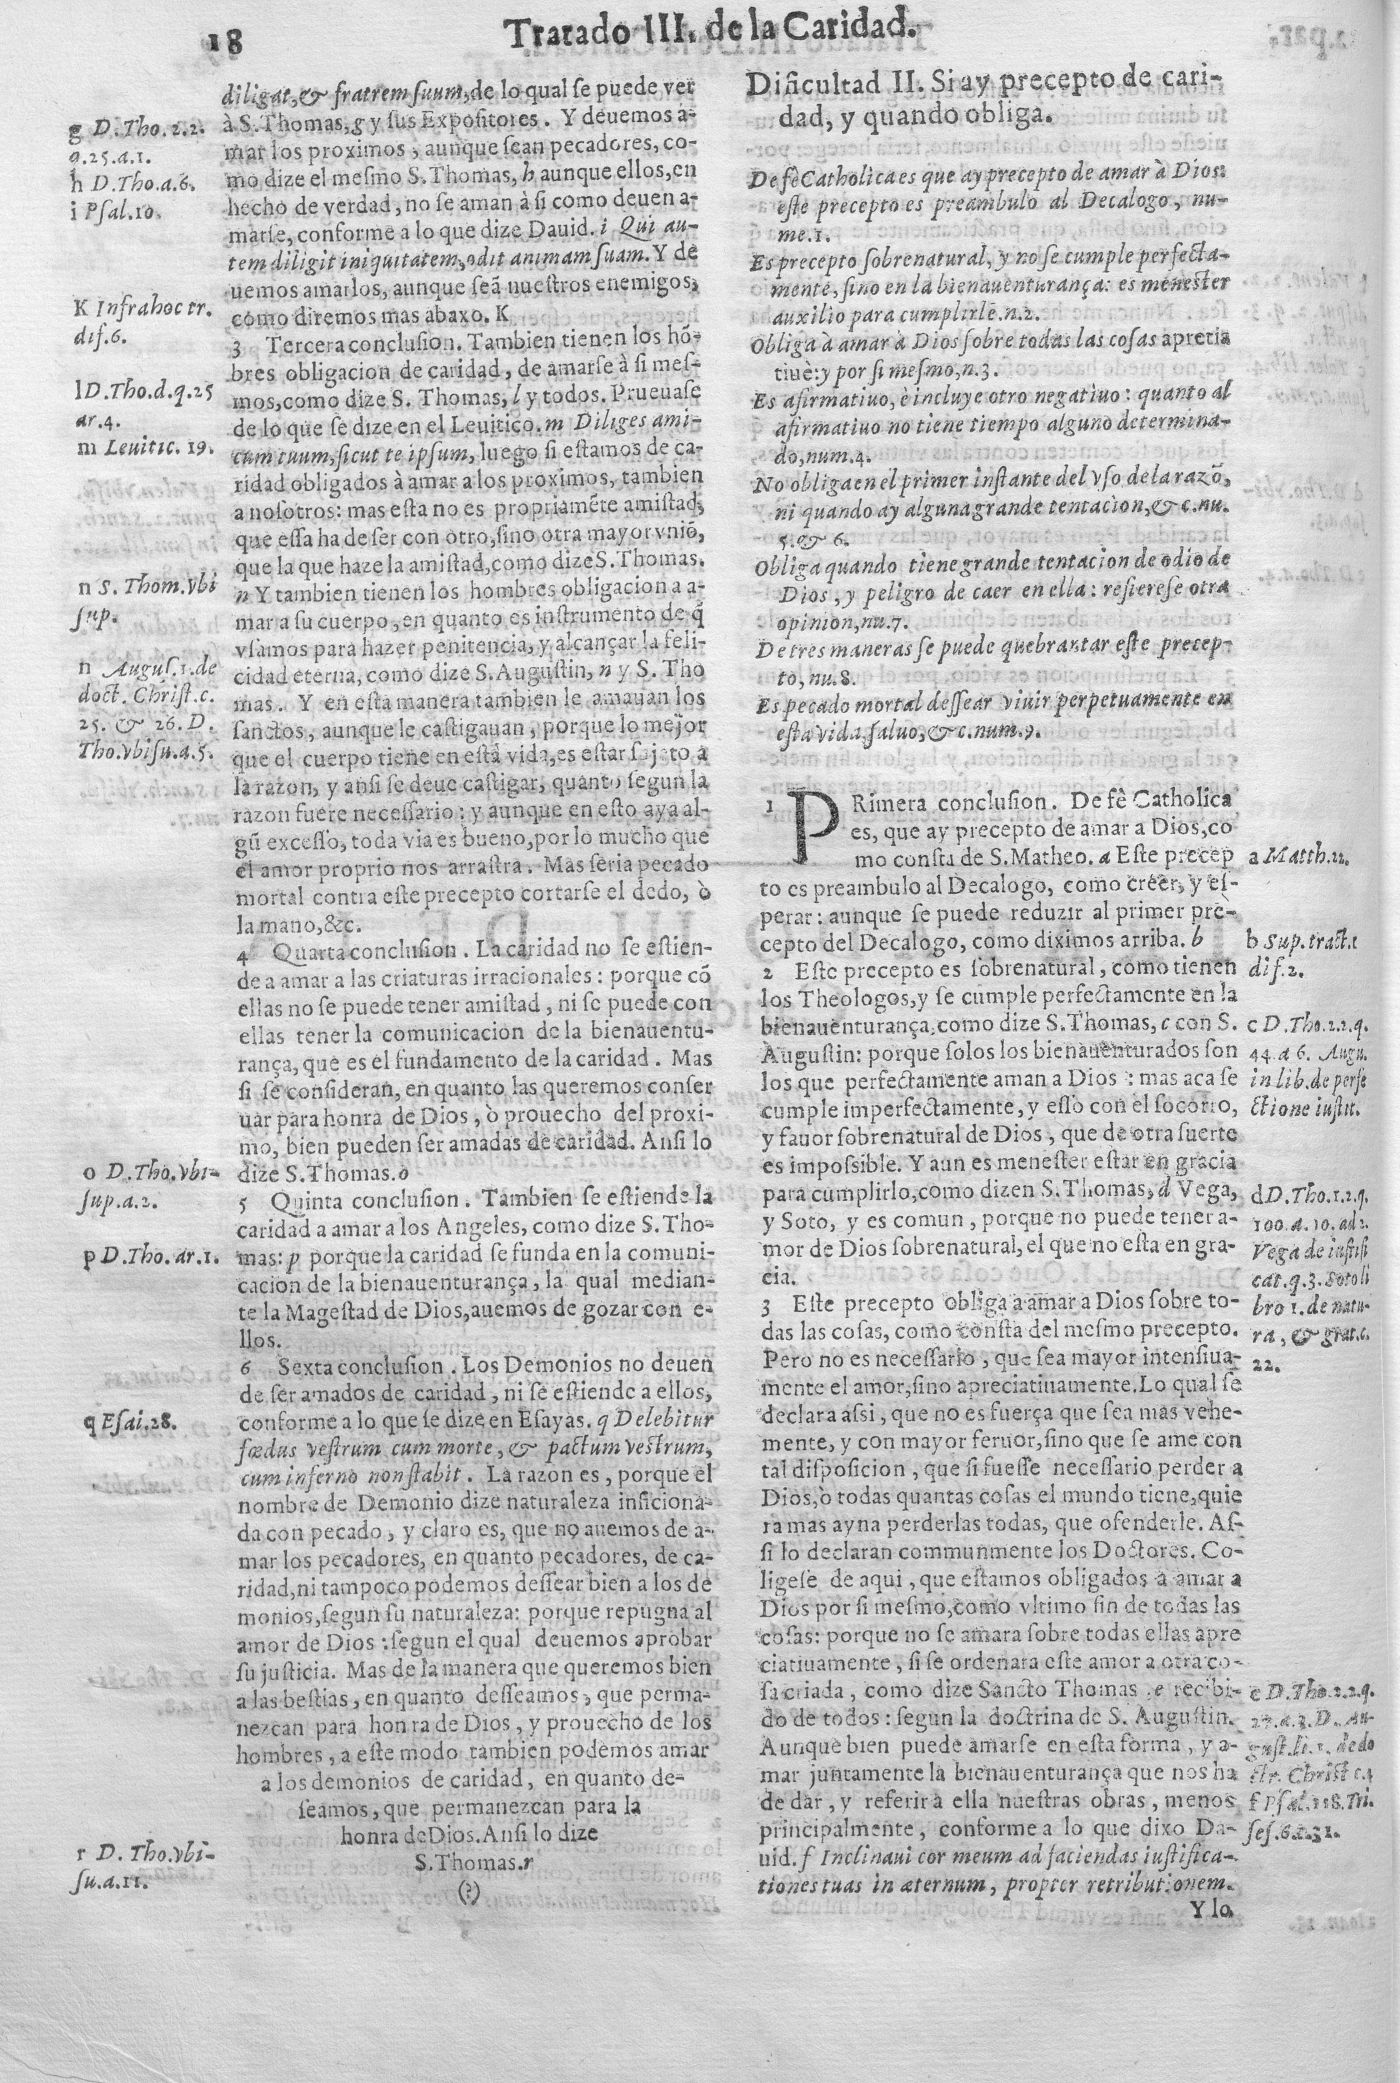 18
Tratado III. de la Caridad.
diligat, & fratrem suum, de lo qual se puede ver
à S. Thomas, g y sus Expositores. Y deuemos a-
mar los proximos, aunque sean pecadores, co-
mo dize el mesmo S. Thomas, h aunque ellos, en
hecho de verdad, no se aman à si como deuen a-
marse, conforme a lo que dize Dauid. i Qui au-
tem diligit iniquitatem, odit animam suam. Y de
uemos amarlos, aunque seã nuestros enemigos,
como diremos mas abaxo. K
3 Tercera conclusion. Tambien tienen los hõ-
bres obligacion de caridad, de amarse à si mes-
mos, como dize S. Thomas, l y todos. Prueuase
de lo que se dize en el Leuitico. m Diliges ami-
cum tuum, sicut te ipsum, luego si estamos de ca-
ridad obligados à amar a los proximos, tambien
a nosotros: mas esta no es propriamẽte amistad,
que essa ha de ser con otro, sino otra mayor vniõ,
que la que haze la amistad, como dize S. Thomas.
n Y tambien tienen los hombres obligacion a a-
mar a su cuerpo, en quanto es instrumento de q̃
vsamos para hazer penitencia, y alcançar la feli-
cidad eterna, como dize S. Augustin, n y S. Tho
mas. Y en esta manera tambien le amauan los
sanctos, aunque le castigauan, porque lo mejor
que el cuerpo tiene en esta vida, es estar sujeto a
la razon, y ansi se deue castigar, quanto segun la
razon fuere necessario: y aunque en esto aya al-
gũ excesso, toda via es bueno, por lo mucho que
el amor proprio nos arrastra. Mas seria pecado
mortal contra este precepto cortarse el dedo, ò
la mano, &c.
4 Quarta conclusion. La caridad no se estien-
de a amar a las criaturas irracionales: porque cõ
ellas no se puede tener amistad, ni se puede con
ellas tener la comunicacion de la bienauentu-
rança, que es el fundamento de la caridad. Mas
si se consideran, en quanto las queremos conser
uar para honra de Dios, ò prouecho del proxi-
mo, bien pueden ser amadas de caridad. Ansi lo
dize S. Thomas. o
5 Quinta conclusion. Tambien se estiende la
caridad a amar a los Angeles, como dize S. Tho-
mas: p porque la caridad se funda en la comuni-
cacion de la bienauenturança, la qual median-
te la Magestad de Dios, auemos de gozar con e-
llos.
6 Sexta conclusion. Los Demonios no deuen
de ser amados de caridad, ni se estiende a ellos,
conforme a lo que se dize en Esayas. q Delebitur
fœdus vestrum cum morte, & pactum vestrum,
cum inferno non stabit. La razon es, porque el
nombre de Demonio dize naturaleza inficiona-
da con pecado, y claro es, que no auemos de a-
mar los pecadores, en quanto pecadores, de ca-
ridad, ni tampoco podemos dessear bien a los de
monios, segun su naturaleza: porque repugna al
amor de Dios: segun el qual deuemos aprobar
su justicia. Mas de la manera que queremos bien
a las bestias, en quanto desseamos, que perma-
nezcan para honra de Dios, y prouecho de los
hombres, a este modo tambien podemos amar
a los demonios de caridad, en quanto de-
seamos, que permanezcan para la
honra de Dios. Ansi lo dize
S. Thomas. r
(?)
g D. Tho. 2.2.
q.25.a.1.
h D. Tho. a.6.
i Psal. 10.
K Infra hoc tr.
dif.6.
l D. Tho. d.q.25
ar.4.
m Leuitic. 19.
n S. Thom. vbi
sup.
n Augus. 1. de
doct. Christ. c.
25. & 26. D.
Tho. vbi su. a.5.
o D. Tho. vbi-
sup. a.2.
p D. Tho. ar. 1.
q Esai. 28.
r D. Tho. vbi-
su. a. 11.
Dificultad II. Si ay precepto de cari-
dad, y quando obliga.
De fè Catholica es que ay precepto de amar à Dios:
este precepto es preambulo al Decalogo, nu-
me. 1.
Es precepto sobrenatural, y no se cumple perfecta-
mente, sino en la bienauenturança: es menester
auxilio para cumplirle. n. 2.
Obliga a amar à Dios sobre todas las cosas apretia
tiuè: y por si mesmo, n. 3.
Es afirmatiuo, è incluye otro negatiuo: quanto al
afirmatiuo no tiene tiempo alguno determina-
do, num. 4.
No obliga en el primer instante del vso de la razõ,
ni quando ay alguna grande tentacion, & c. nu.
5. & 6.
Obliga quando tiene grande tentacion de odio de
Dios, y peligro de caer en ella: refierese otra
opinion, nu. 7.
De tres maneras se puede quebrantar este precep-
to, nu. 8.
Es pecado mortal dessear viuir perpetuamente en
esta vida, saluo, & c. num. 9.
1 PRimera conclusion. De fè Catholica
es, que ay precepto de amar a Dios, co
mo consta de S. Matheo. a Este precep
to es preambulo al Decalogo, como creer, y es-
perar: aunque se puede reduzir al primer pre-
cepto del Decalogo, como diximos arriba. b
2 Este precepto es sobrenatural, como tienen
los Theologos, y se cumple perfectamente en la
bienauenturança, como dize S. Thomas, c con S.
Augustin: porque solos los bienauenturados son
los que perfectamente aman a Dios: mas aca se
cumple imperfectamente, y esso con el socorro,
y fauor sobrenatural de Dios, que de otra suerte
es impossible. Y aun es menester estar en gracia
para cumplirlo, como dizen S. Thomas, d Vega,
y Soto, y es comun, porque no puede tener a-
mor de Dios sobrenatural, el que no esta en gra-
cia.
3 Este precepto obliga a amar a Dios sobre to-
das las cosas, como consta del mesmo precepto.
Pero no es necessario, que sea mayor intensiua-
mente el amor, sino apreciatiuamente. Lo qual se
declara assi, que no es fuerça que sea mas vehe-
mente, y con mayor feruor, sino que se ame con
tal disposicion, que si fuesse necessario perder a
Dios, ò todas quantas cosas el mundo tiene, quie
ra mas ayna perderlas todas, que ofenderle. As-
si lo declaran communmente los Doctores. Co-
ligese de aqui, que estamos obligados a amar a
Dios por si mesmo, como vltimo fin de todas las
cosas: porque no se amara sobre todas ellas apre
ciatiuamente, si se ordenara este amor a otra co-
sa criada, como dize Sancto Thomas: e recibi-
do de todos: segun la doctrina de S. Augustin.
Aunque bien puede amarse en esta forma, y a-
mar juntamente la bienauenturança que nos ha
de dar, y referir a ella nuestras obras, menos
principalmente, conforme a lo que dixo Da-
uid. f Inclinaui cor meum ad faciendas iustifica-
tiones tuas in æternum, propter retributionem.
Y lo
a Matth. 22.
b Sup. tract. 1
dif. 2.
c D. Tho. 2.2. q.
44. a 6. Augu.
in lib. de perfe
ctione iustit.
d D. Tho. 1.2. q.
100. a. 10. ad 2.
Vega de iustifi
cat. q. 3. Soto li
bro 1. de natu-
ra, & grat. c.
22.
e D. Tho. 2.2. q.
27. a. 3. D. Au-
gust. li. 1. de do
ctr. Christ c. 4
f Psal. 118. Tri.
ses. 6. c. 31.